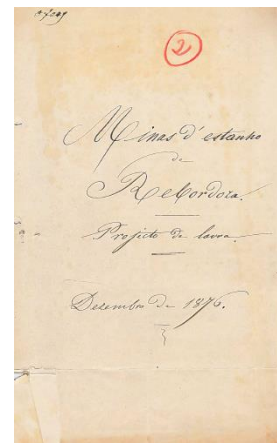 2
Minas d'estanho
de
Rebordoza.
Projecto de lavra.
Dezembro de 1876.